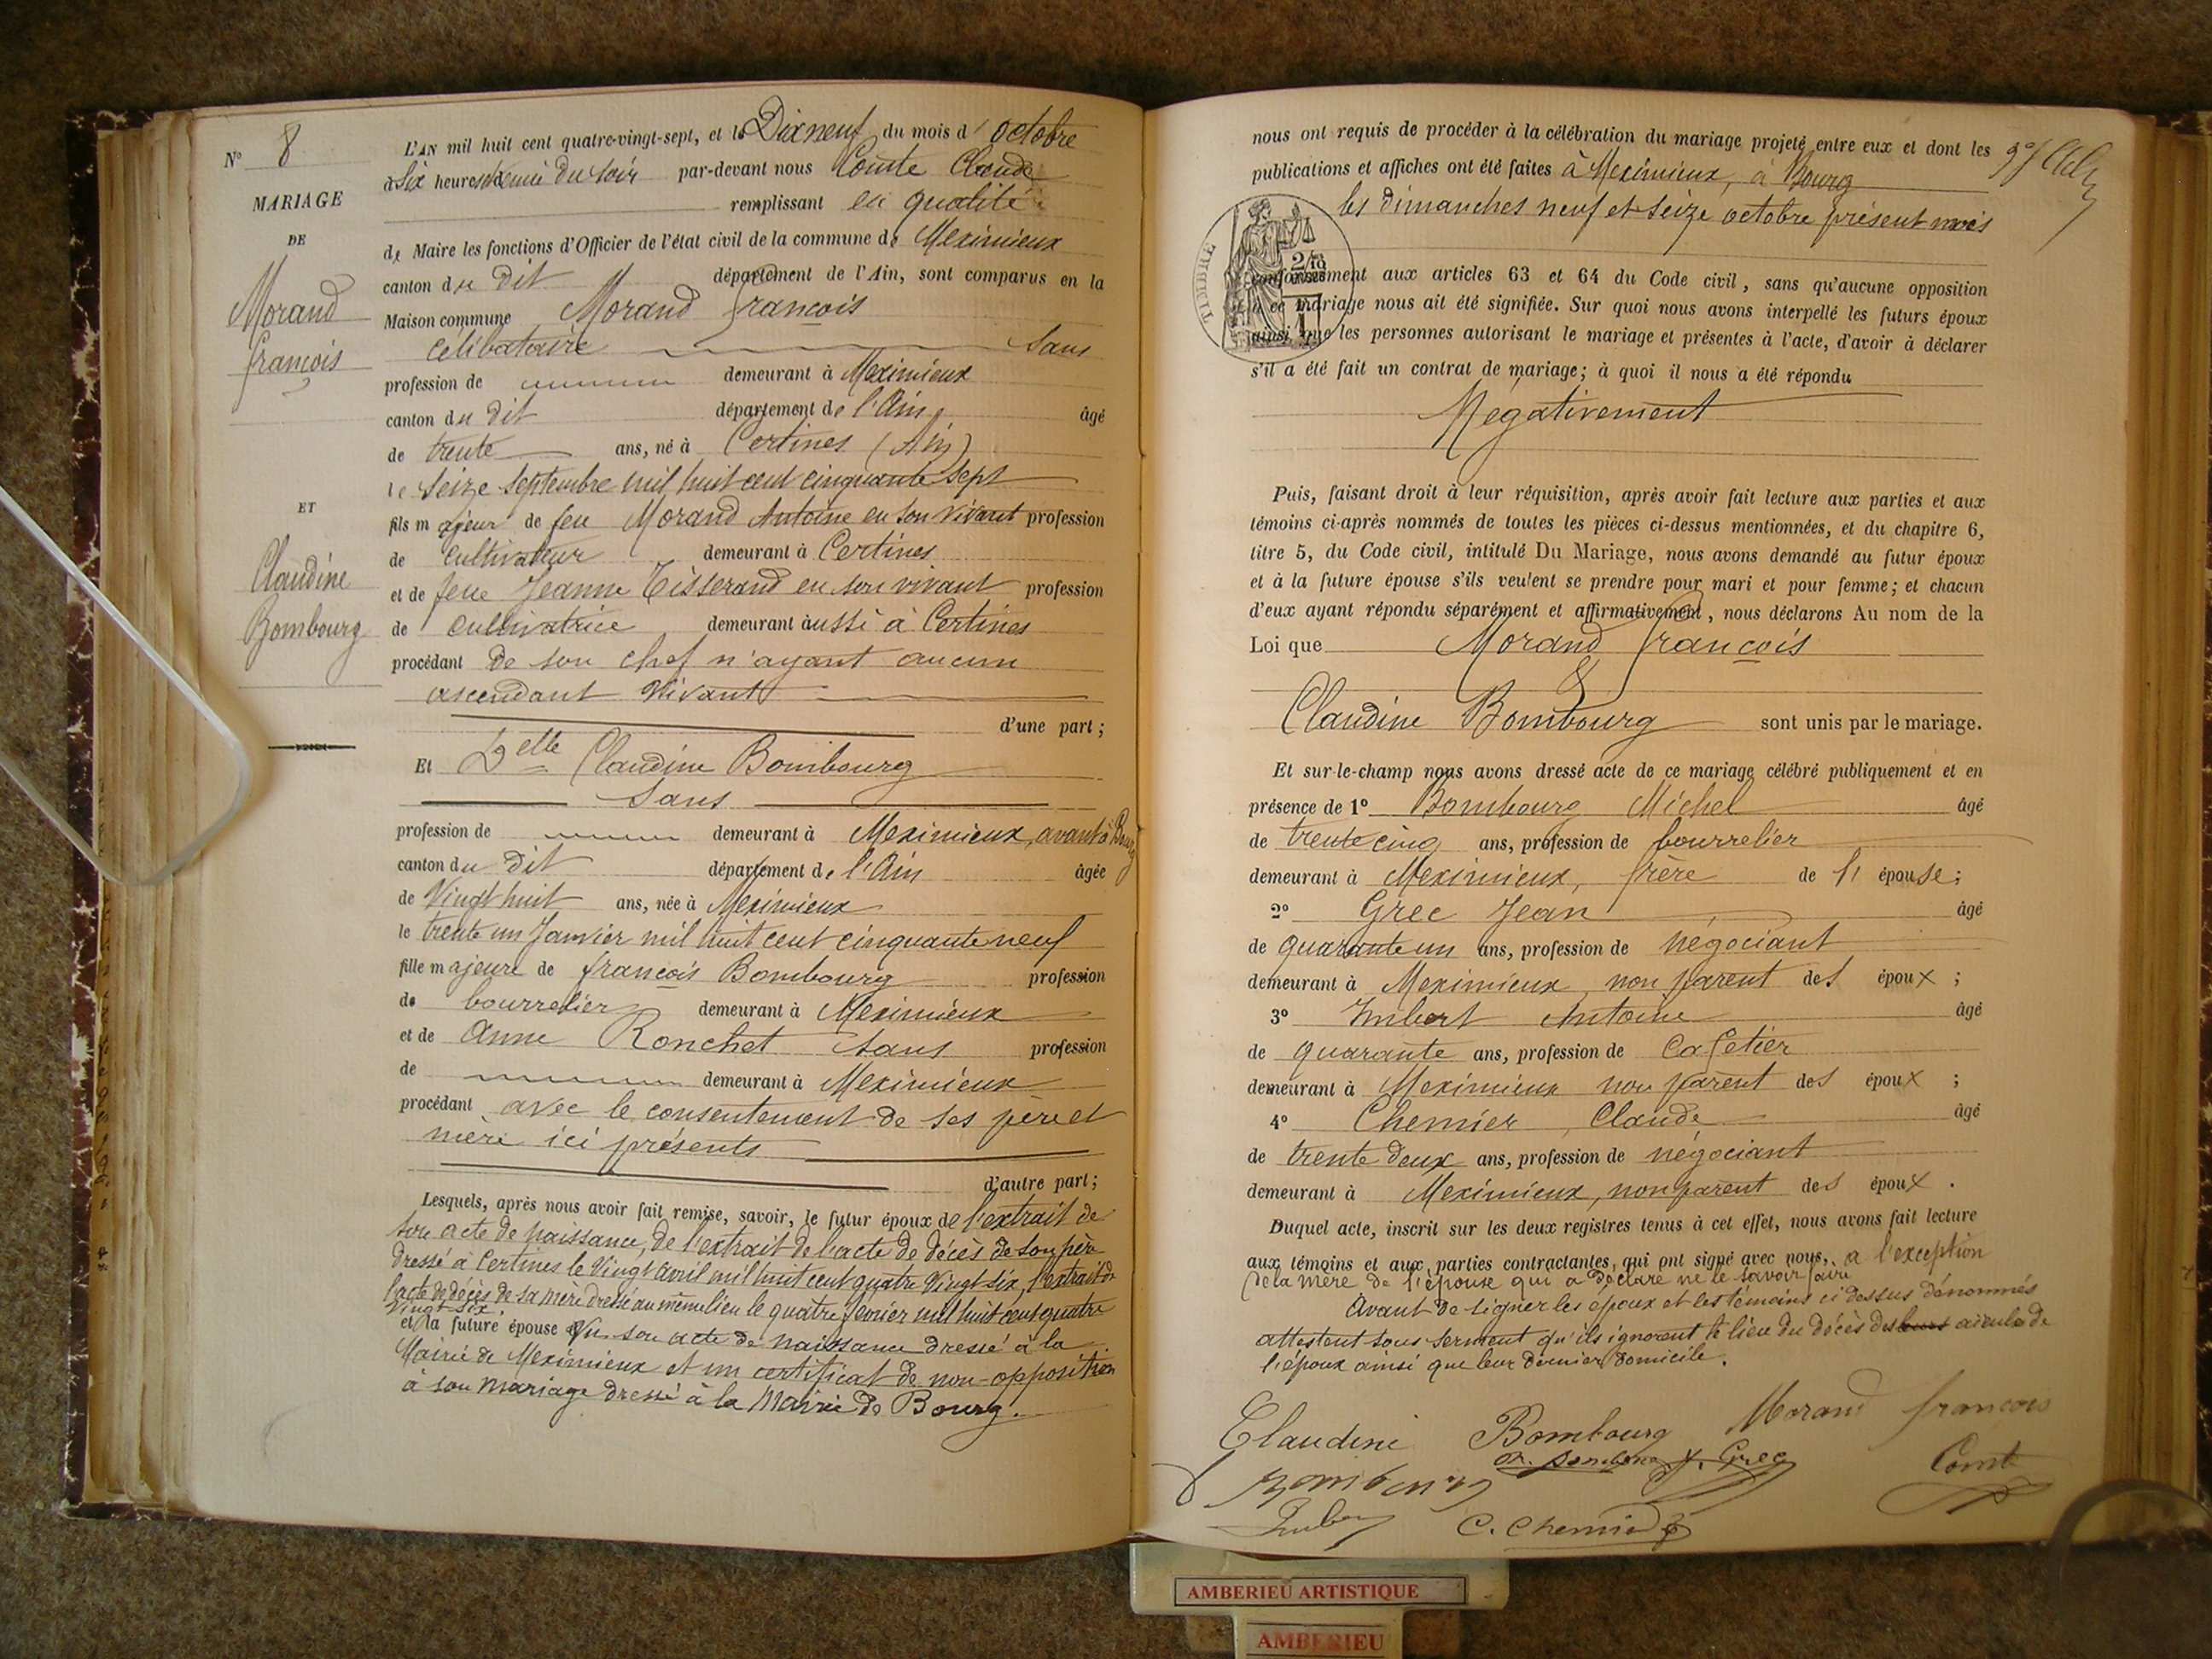 N° 8
MARIAGE
DE
Morand
françois
ET
Claudine
Bombourg
L'AN mil huit cent quatre-vingt-sept, et le Dix neuf du mois d' octobre
à Six heures & demie du soir par-devant nous Comte Claude
remplissant en qualité
de Maire les fonctions d'Officier de l'état civil de la commune de Meximieux
canton du dit département de l'Ain, sont comparus en la
Maison commune Morand françois
célibataire Sans
profession de demeurant à Meximieux
canton du dit département de l'Ain âgé
de trente ans, né à Certines (Ain)
le seize septembre mil huit cent cinquante sept
fils majeur de feu Morand Antoine en son vivant profession
de cultivateur demeurant à Certines
et de feue Jeanne Tisserand en son vivant profession
de cultivatrice demeurant aussi à Certines
procédant de son chef n'ayant aucun
ascendant vivant
d'une part ;
Et Delle Claudine Bombourg
Sans
profession de demeurant à Meximieux, avant à Bourg
canton du dit département de l'Ain âgée
de Vingt huit ans, née à Meximieux
le trente un Janvier mil huit cent cinquante neuf
fille majeure de françois Bombourg profession
de bourrelier demeurant à Meximieux
et de Anne Ronchet Sans profession
de demeurant à Meximieux
procédant avec le consentement de ses père et
mère ici présents
d'autre part ;
Lesquels, après nous avoir fait remise, savoir, le futur époux de l'extrait de
son acte de naissance, de l'extrait de l'acte de décès de son père
dressé à Certines le Vingt avril mil huit cent quatre vingt six, l'extrait de
l'acte de décès de sa mère dressé au même lieu le quatre février mil huit cent quatre
vingt six.
et la future épouse un son acte de naissance dressé à la
Mairie de Meximieux et un certificat de non-opposition
à son mariage dressé à la Mairie de Bourg.
nous ont requis de procéder à la célébration du mariage projeté entre eux et dont les
publications et affiches ont été faites à Meximieux, à Bourg
les dimanches neuf et seize octobre présent mois
TIMBRE
conformément aux articles 63 et 64 du Code civil, sans qu'aucune opposition
à ce mariage nous ait été signifiée. Sur quoi nous avons interpellé les futurs époux
ainsi que les personnes autorisant le mariage et présentes à l'acte, d'avoir à déclarer
s'il a été fait un contrat de mariage ; à quoi il nous a été répondu
Negativement
Puis, faisant droit à leur réquisition, après avoir fait lecture aux parties et aux
témoins ci-après nommés de toutes les pièces ci-dessus mentionnées, et du chapitre 6,
titre 5, du Code civil, intitulé Du Mariage, nous avons demandé au futur époux
et à la future épouse s'ils veulent se prendre pour mari et pour femme ; et chacun
d'eux ayant répondu séparément et affirmativement, nous déclarons Au nom de la
Loi que Morand françois
&
Claudine Bombourg sont unis par le mariage.
Et sur-le-champ nous avons dressé acte de ce mariage célébré publiquement et en
présence de 1° Bombourg Michel âgé
de trente cinq ans, profession de bourrelier
demeurant à Meximieux, frère de l' épouse ;
2° Grec Jean âgé
de quarante un ans, profession de négociant
demeurant à Meximieux, non parent des époux ;
3° Imbert Antoine âgé
de quarante ans, profession de Cafetier
demeurant à Meximieux non parent des époux ;
4° Chemier, Claude âgé
de trente deux ans, profession de négociant
demeurant à Meximieux, non parent des époux .
Duquel acte, inscrit sur les deux registres tenus à cet effet, nous avons fait lecture
aux témoins et aux parties contractantes, qui ont signé avec nous, a l'exception
de la mère de l'épouse qui a déclaré ne le savoir faire
Avant de signer les époux et les témoins ci dessus dénommés
attestent sous serment qu'ils ignorent le lieu du décès des leurs aïeuls de
l'époux ainsi que leur dernier domicile.
Claudine Bombourg Morand françois
J. Grec Comte
Bombourg
C. Chemier
AMBERIEU ARTISTIQUE
AMBERIEU